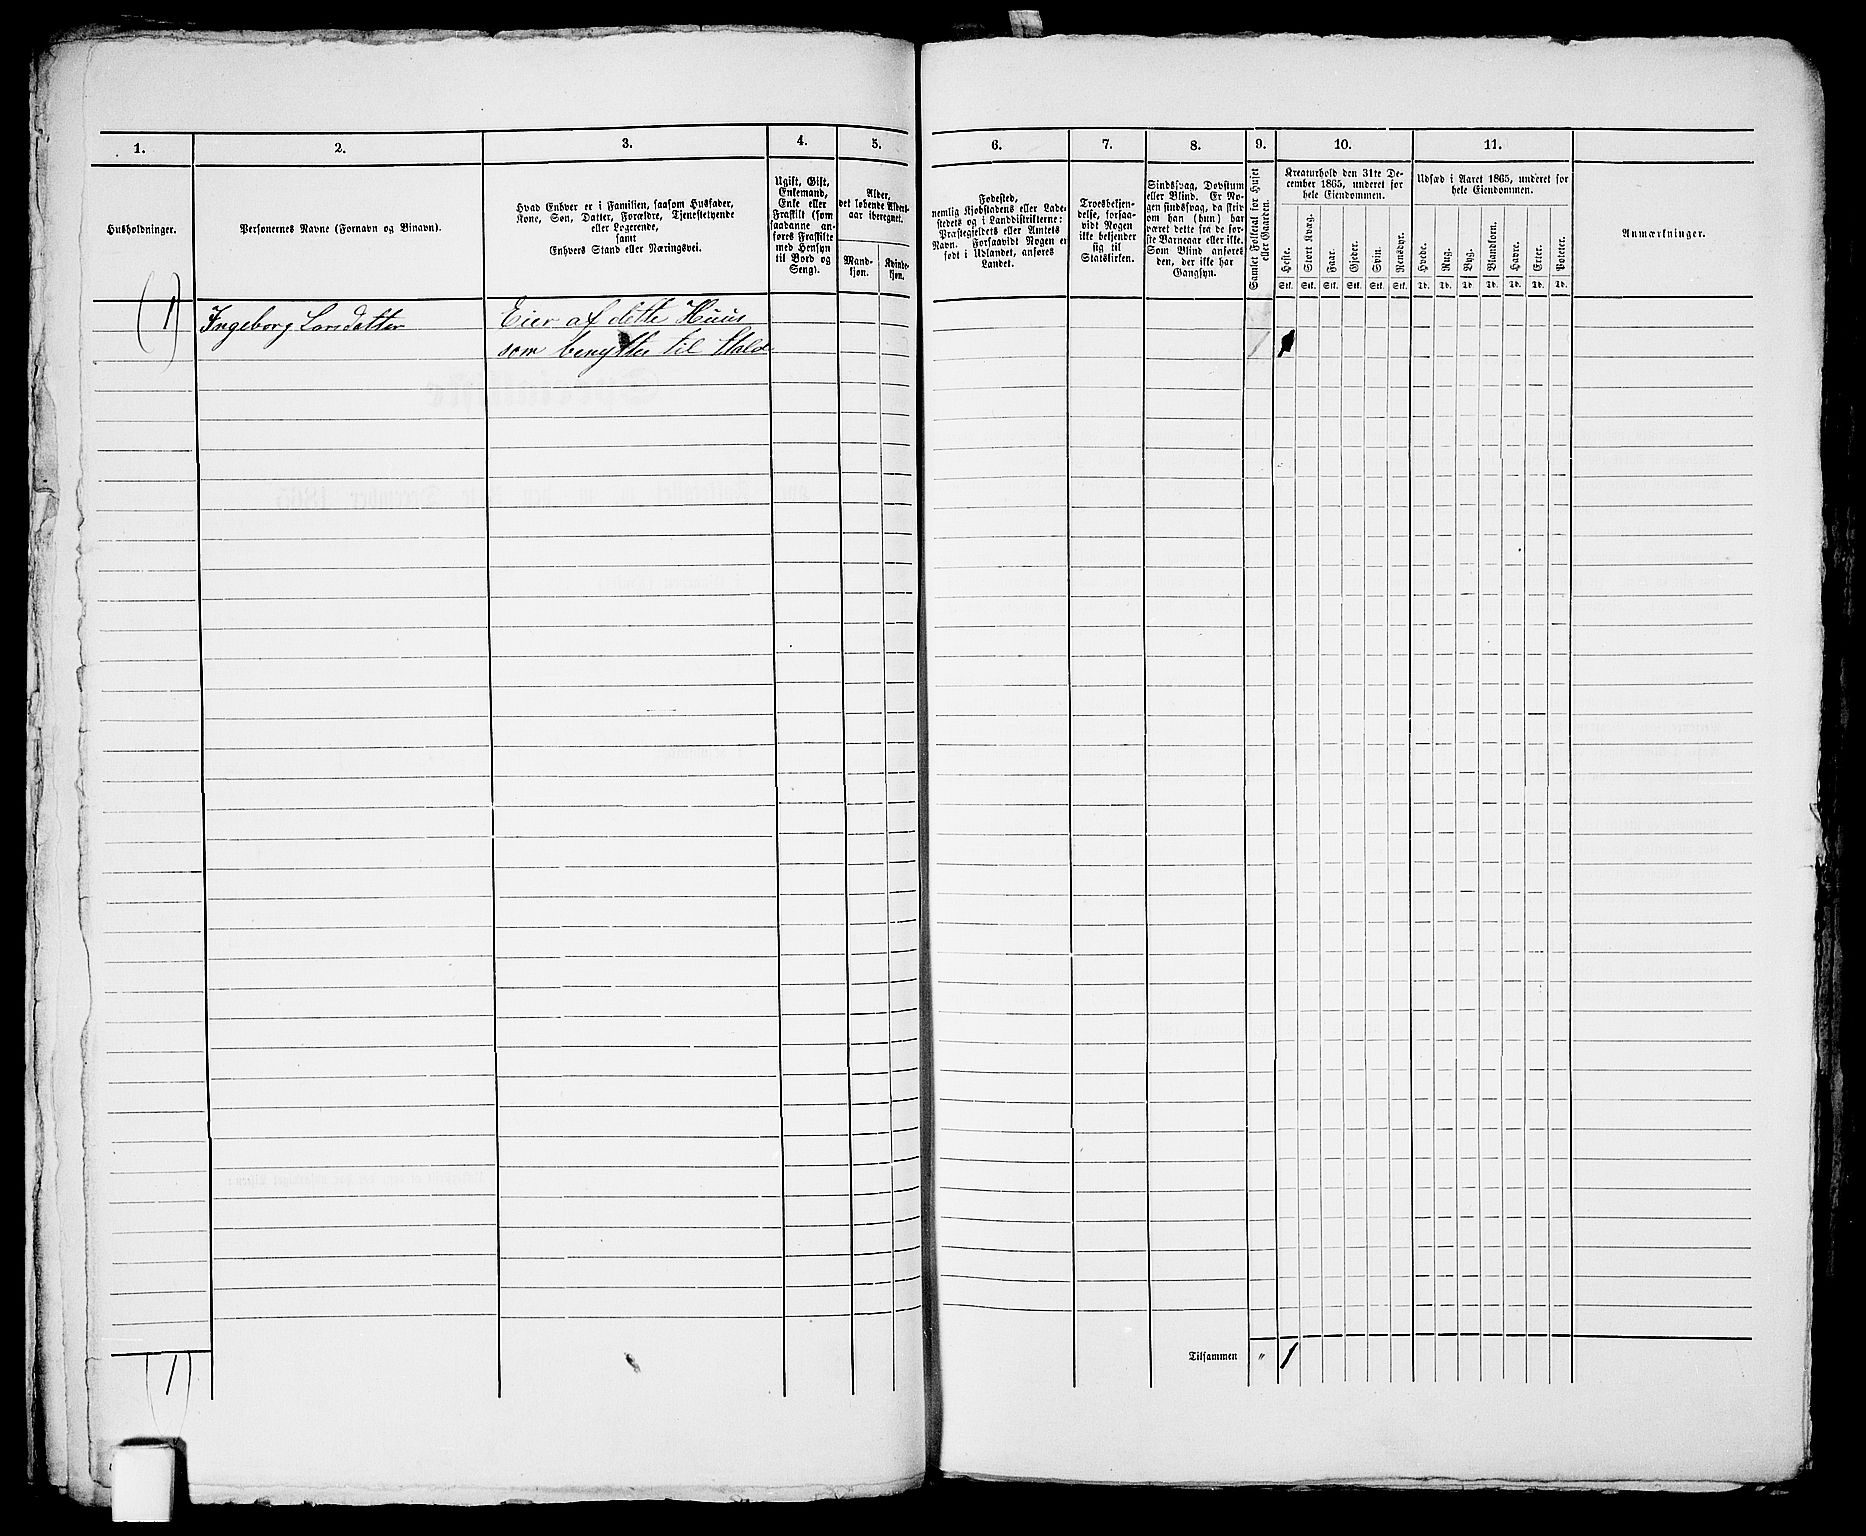 1.
2.
3.
4.
5.
6.
7.
8.
9.
10.
11.
Husholdninger.
Personernes Navne (Fornavn og Binavn).
Hvad Enhver er i Familien, saasom Husfader,
Kone, Søn, Datter, Forældre, Tjenestetyende
eller Logerende,
samt
Enhvers Stand eller Næringsvei.
Ugift, Gift,
Enkemand,
Enke eller
Fraskilt (som
saadanne an-
føres Fraskilte
med Hensyn
til Bord og
Seng).
Alder,
det løbende Alders-
aar iberegnet.
Mand-
kjøn.
Kvinde-
kjøn.
Fødested,
nemlig Kjøbstadens eller Lade-
stedets og i Landdistrikterne:
Præstegjeldets eller Amtets
Navn. Forsaavidt Nogen er
født i Udlandet, anføres
Landet.
Troesbekjen-
delse, forsaa-
vidt Nogen
ikke bekjender
sig til
Statskirken.
Sindssvag, Døvstum
eller Blind. Er No-
gen sindssvag, da skriv
om han (hun) har
været dette fra de før-
ste Barneaar eller ikke.
Som Blind anføres
den, der ikke har
Gangsyn.
Samlet Folketal for Huset
eller Gaarden.
Kreaturhold den 31te De-
cember 1865, underet for
hele Eiendommen.
Heste.
Stort Kvæg.
Faar.
Gjeder.
Svin.
Rensdyr.
Stk. Stk. Stk. Stk. Stk. Stk.
Udsæd i Aaret 1865, underet for
hele Eiendommen.
Hvede.
Rug.
Byg.
Blandkorn.
Havre.
Erter.
Poteter.
Td. Td. Td. Td. Td. Td. Td.
Anmærkninger.
(1) Ingeborg Larsdatter Eier af dette Huus
som benyttes til Stald 1 1
Tilsammen " 1
(1)